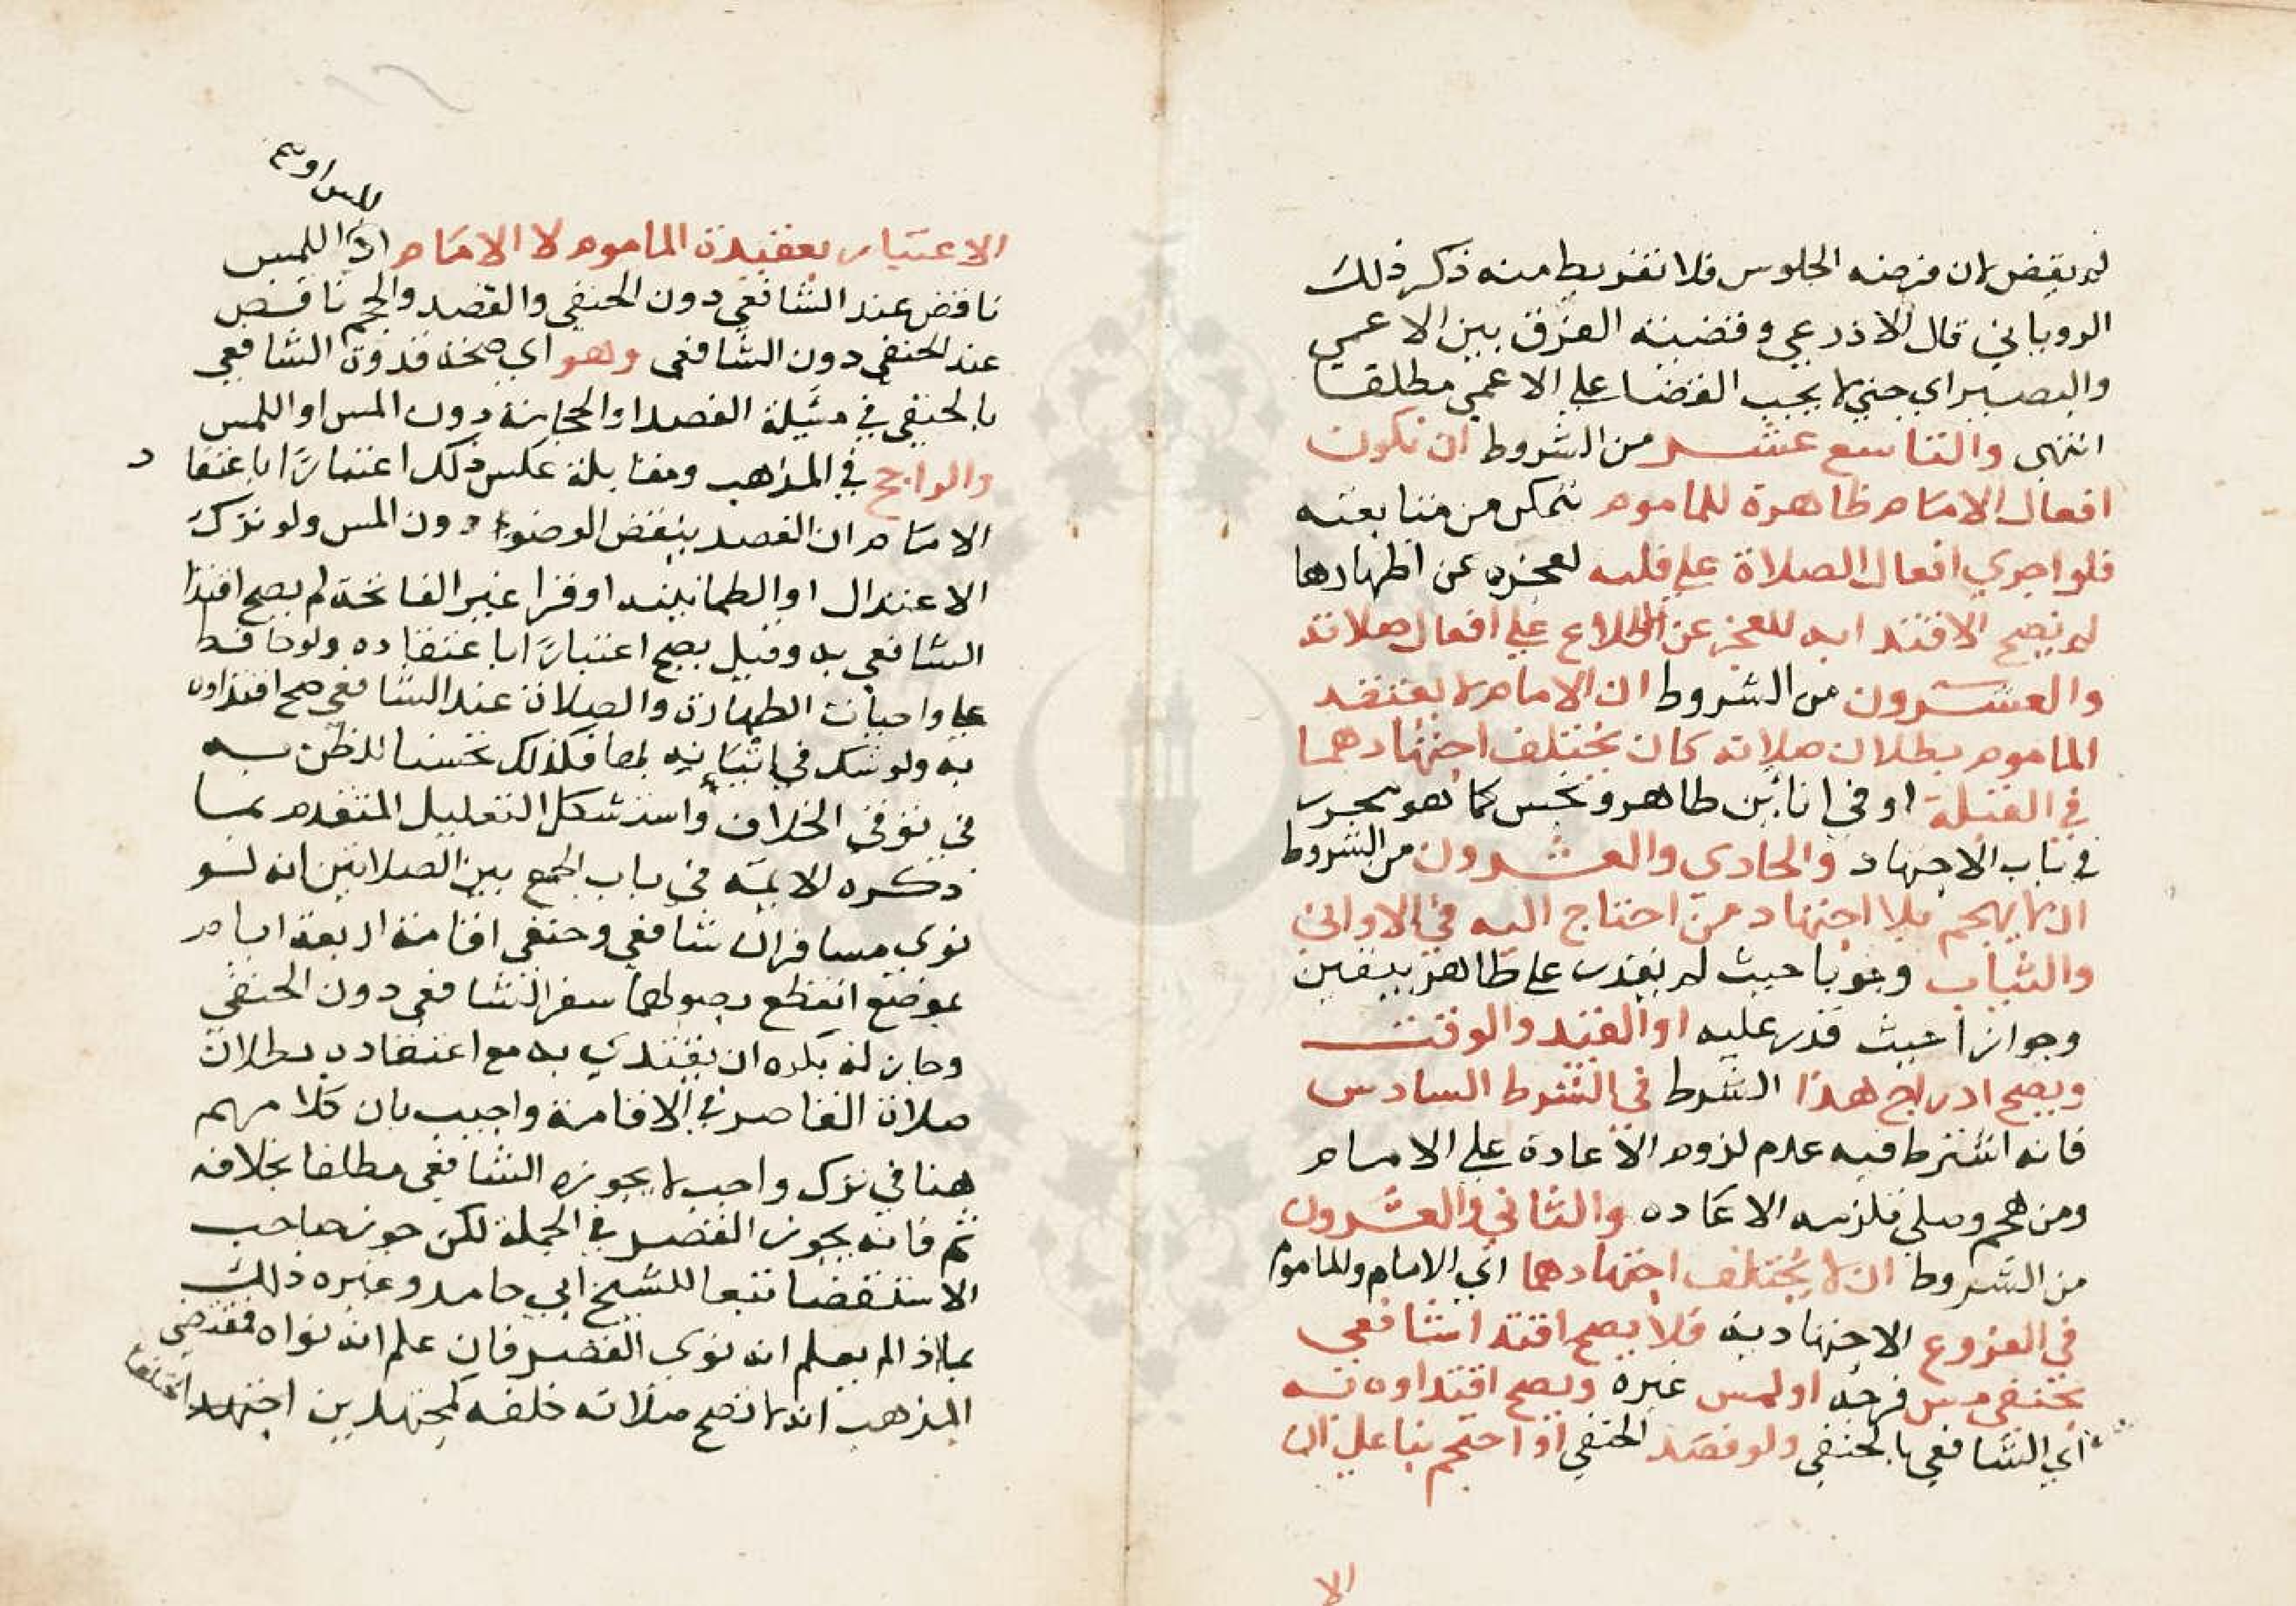 لم يقض لان فرضه الجلوس فلا تفريط منه ذكر ذلك
الروياني قال الاذرعي وقضيته الفرق بين الاعمى
والبصير اي حتى لا يجب القضا على الاعمى مطلقا
انتهى والتاسع عشر من الشروط ان تكون
افعال الامام ظاهرة للماموم تتمكن من متابعته
فلو اجرى افعال الصلاة على قلبه لعجزه عن اظهارها
لم تصح الاقتدا به للعجز عن الاطلاع على افعال صلاته
والعشرون من الشروط ان الامام لا يعتقد
الماموم بطلان صلاته كان يختلف اجتهادهما
في القبلة او في انائين طاهر ونجس كما هو محرر
في باب الاجتهاد والحادي والعشرون من الشروط
ان لا يهجم بلا اجتهاد من احتاج اليه في الاواني
والثياب وجوبا حيث لم يقدر على طاهر بيقين
وجوازا حيث قدر عليه او القبلة والوقت
ويصح ادراج هذا الشرط في الشرط السادس
فانه اشترط فيه عدم لزوم الاعادة على الامام
ومن هجم وصلى فلزمه الاعاده والثاني والعشرون
من الشروط ان لا يختلف اجتهادهما اي الامام والماموم
في الفروع الاجتهادية فلا يصح اقتدا شافعي
بحنفي مس فرجه او لمس غيره ويصح اقتداوه به
اي الشافعي بالحنفي ولو فصد الحنفي او احتجم بنا على ان
الا
الاعتبار بعقيدة الماموم لا الامام اذ اللمس
المس او
ناقض عند الشافعي دون الحنفي والفصد والحجم ناقض
عند الحنفي دون الشافعي وهو اي صحة قدوة الشافعي
بالحنفي في مسئلة الفصد او الحجامة دون المس او اللمس
والراجح في المذهب ومقابله عكس ذلك اعتبارا باعتقاد
الامام ان الفصد ينقض الوضوء دون المس ولو ترك
الاعتدال او الطمانينه او قرا غير الفاتحة لم يصح اقتدا
الشافعي به وقيل يصح اعتبارا باعتقاده ولو حافظ
على واجبات الطهارة والصلاة عند الشافعي صح اقتداوه
به ولو شك في اتيانه لها فكذلك تحسينا للظن به
في توقي الخلاف واستشكل التعليل المتقدم بما
ذكره الايمة في باب الجمع بين الصلاتين انه لو
نوى مسافران شافعي وحنفي اقامة اربعة ايام
بموضع انقطع بوصولهما سفر الشافعي دون الحنفي
وجاز له بكره ان يقتدي به مع اعتقاده بطلان
صلاة القاصر في الاقامة واجيب بان كلامهم
هنا في ترك واجب لا يجوزه الشافعي مطلقا بخلافه
ثم فانه يجوز القصر في الجملة لكن جوز صاحب
الاستقصا تبعا للشيخ ابي حامد وغيره ذلك
بما اذا لم يعلم انه نوى القصر فان علم انه نواه فمقتضى
المذهب انه لا تصح صلاته خلفه كمجتهدين اختلفا